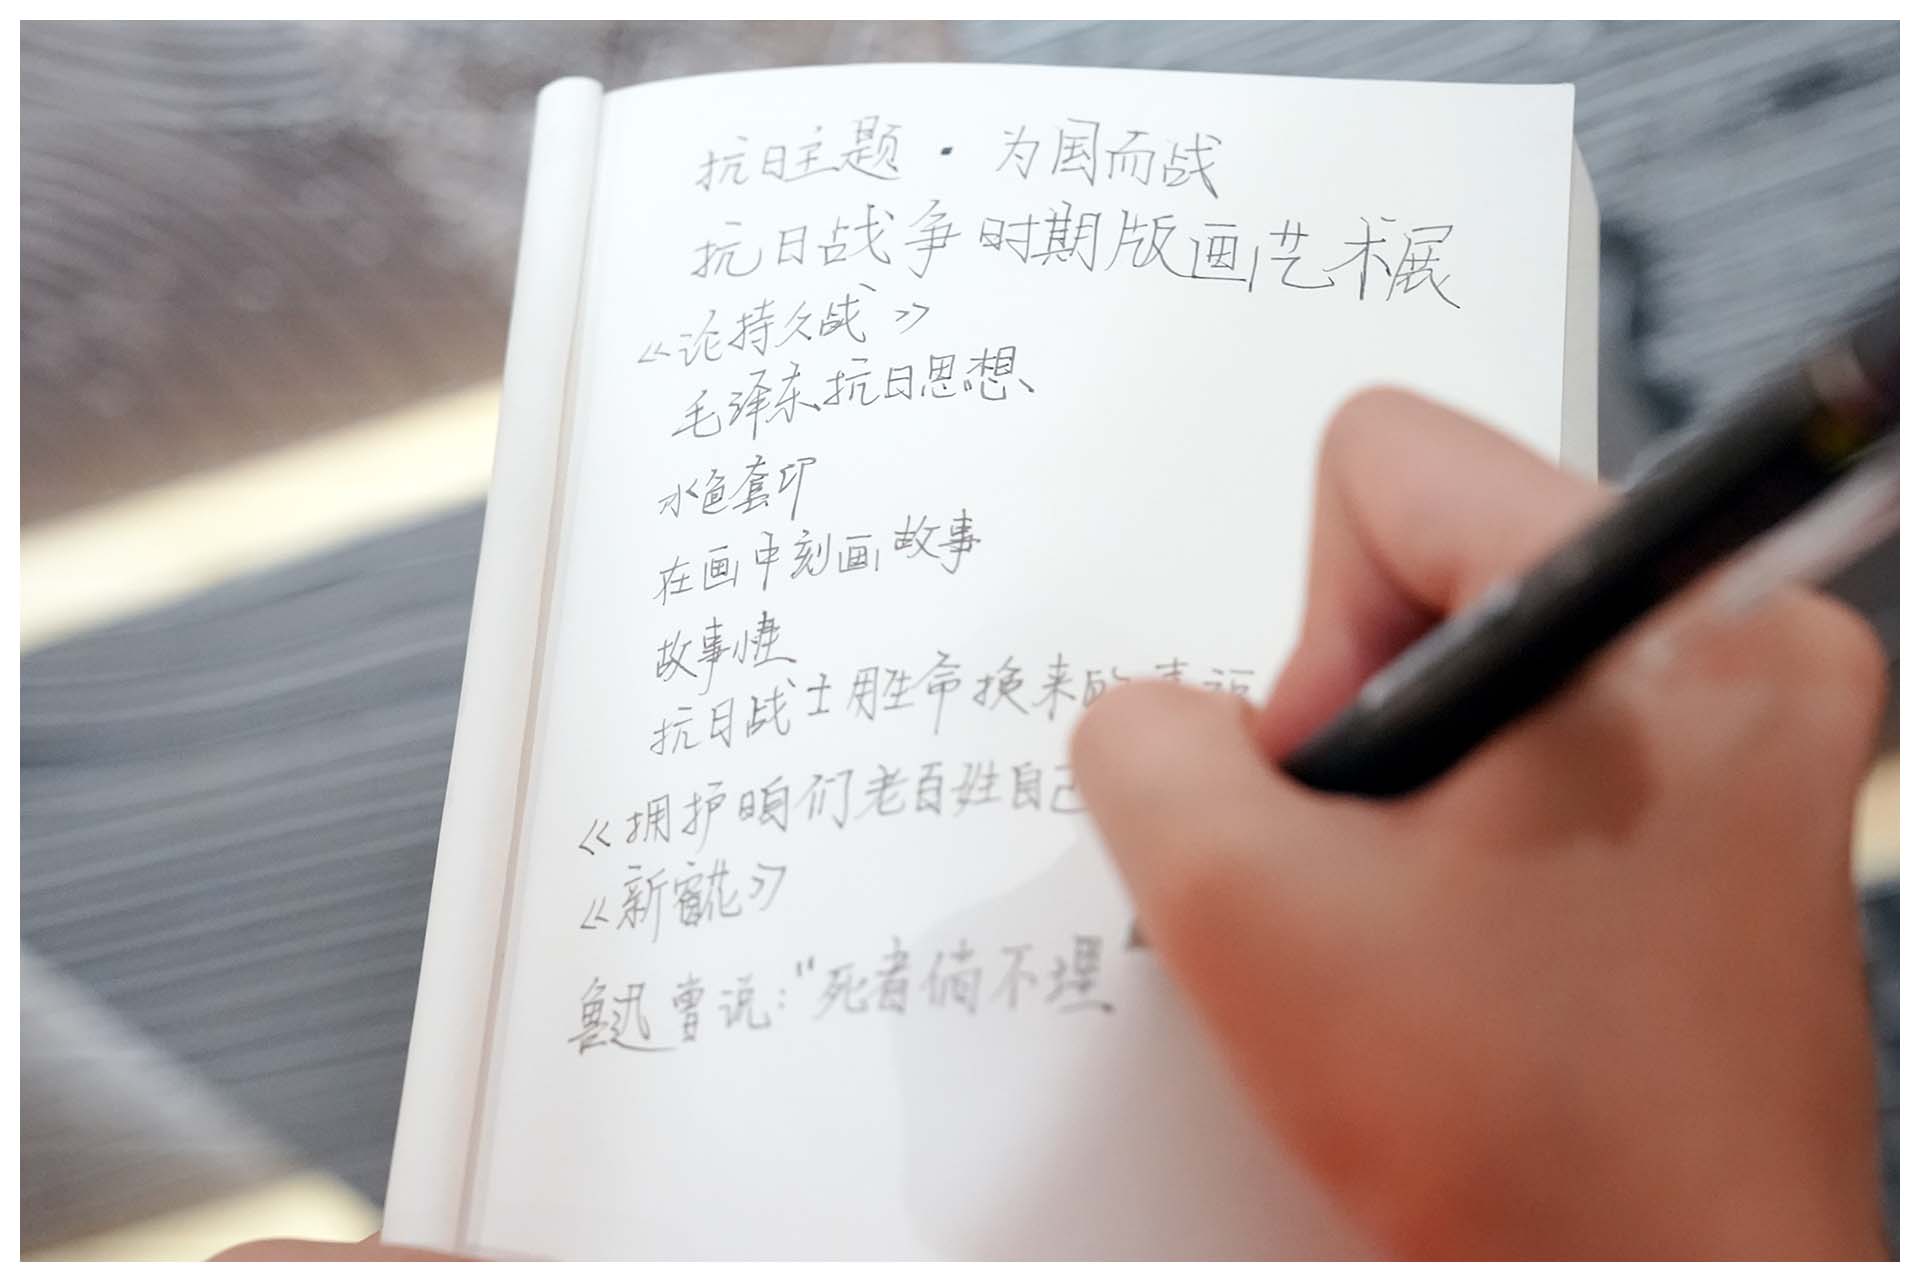 抗日主题·为国而战
抗日战争时期版画艺术展
《论持久战》
毛泽东抗日思想、
水色套印
在画中刻画故事
故事性
抗日战士用生命换来的幸福
《拥护咱们老百姓自己
《新窗花》
鲁迅曾说:"死者倘不埋